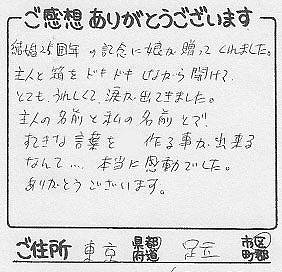 ご感想ありがとうございます
結婚25周年の記念に娘が贈ってくれました。
主人と箱をドキドキしながら開けて、
とても、うれしくて、涙が出てきました。
主人の名前と私の名前とで、
すてきな言葉を 作る事が出来る
なんて… 本当に感動でした。
ありがとうございます。
ご住所 東京 都道府県 足立 市区町郡